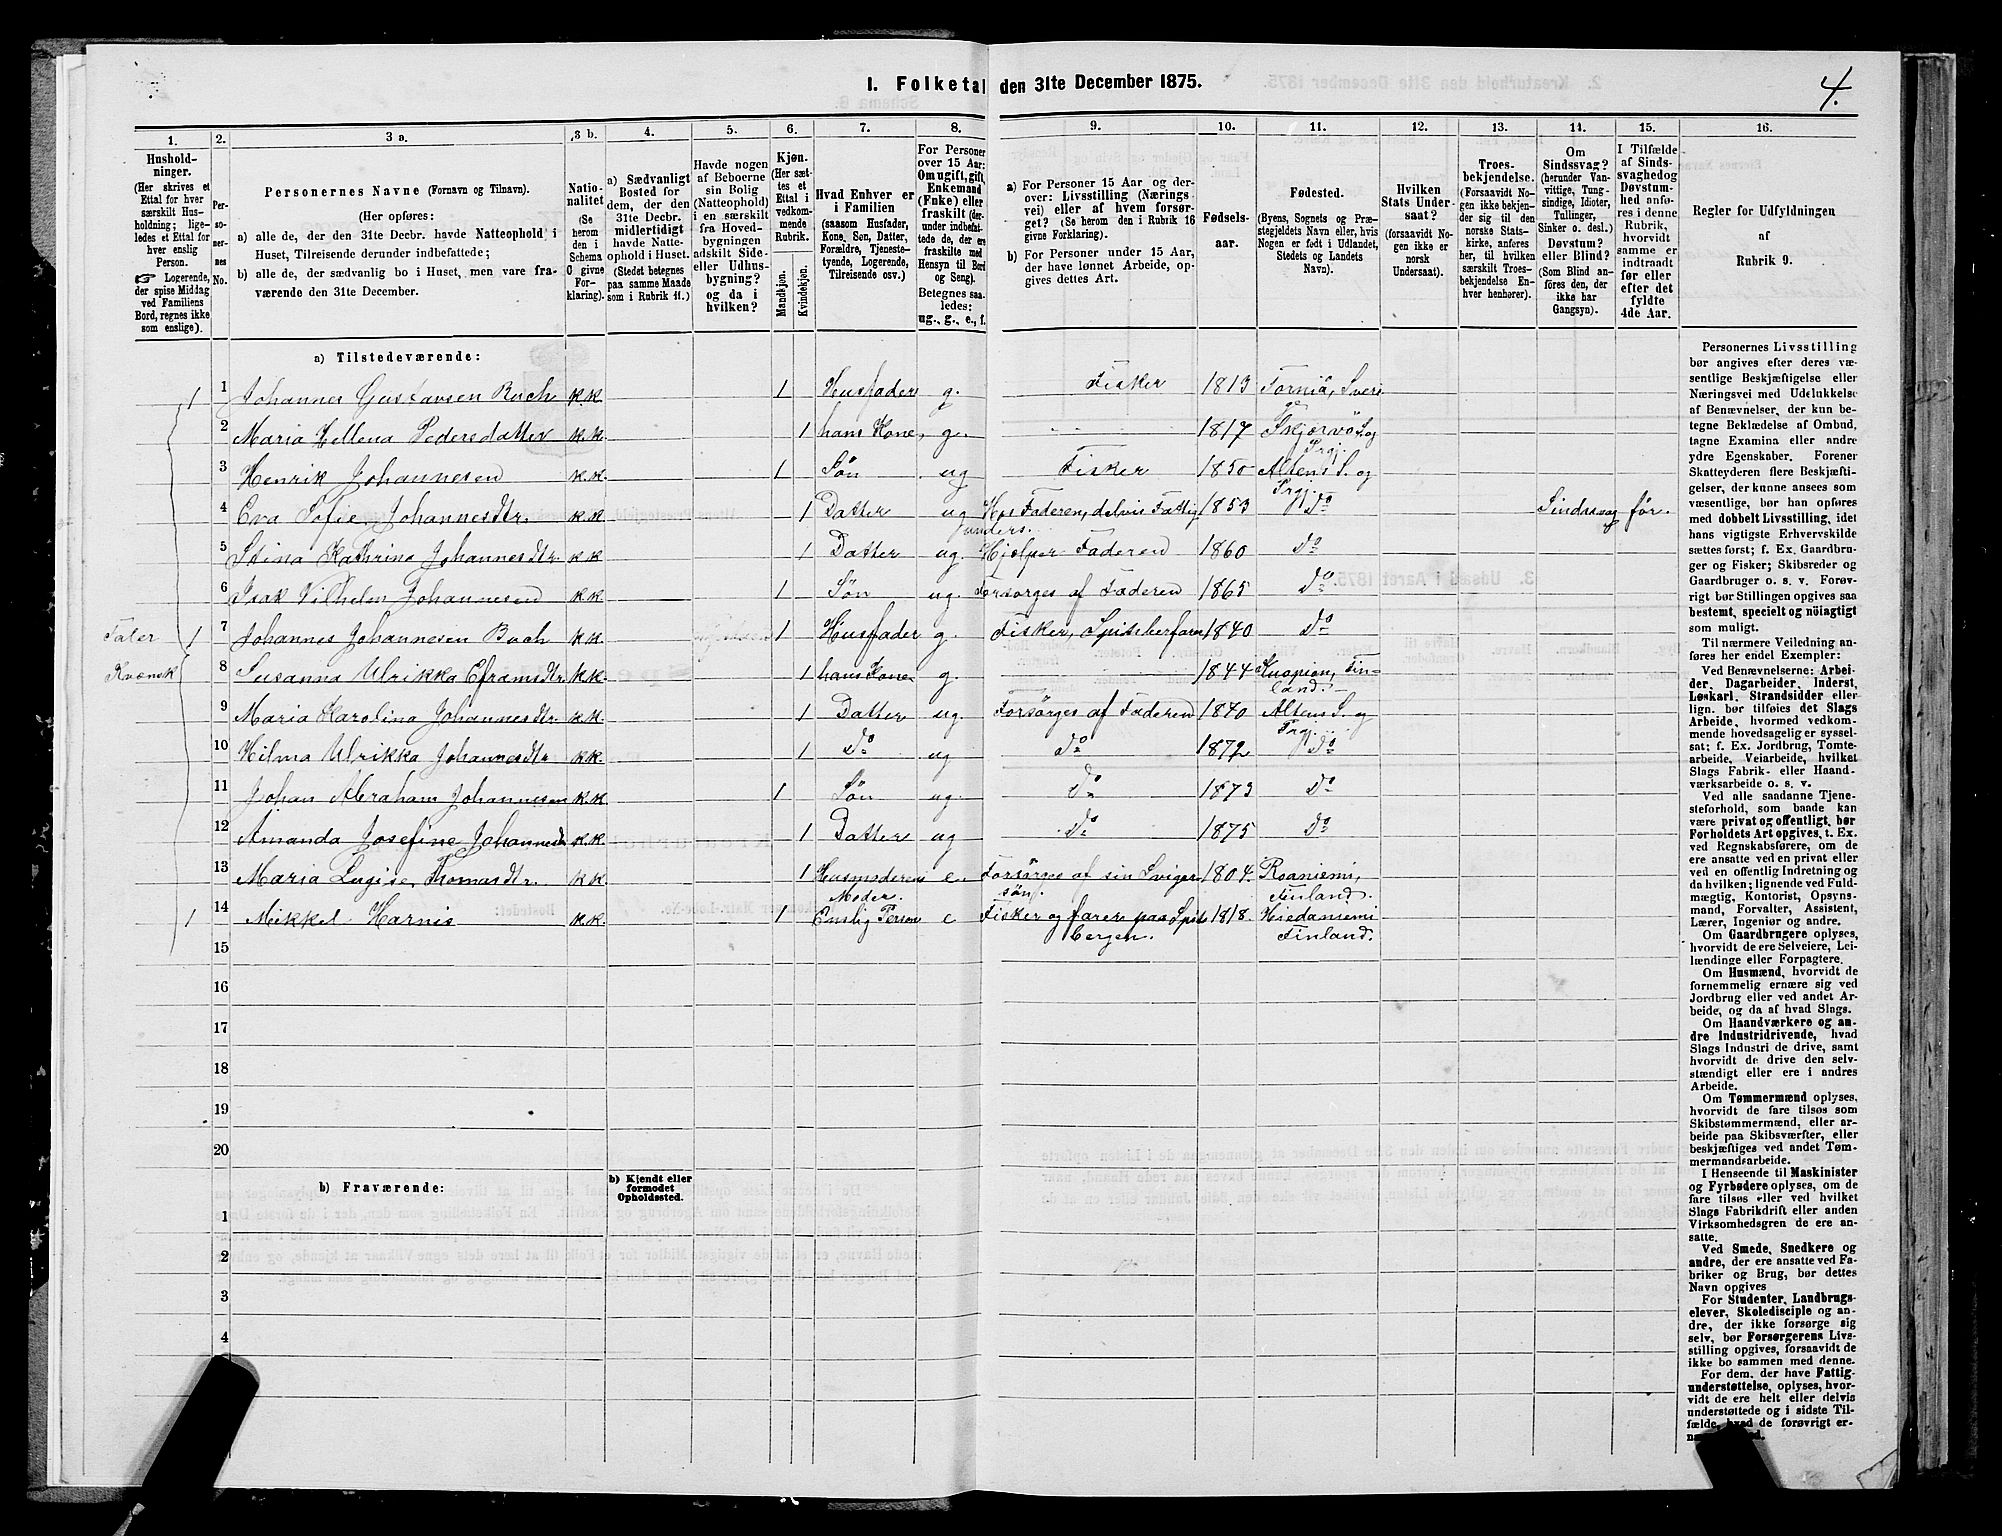 4.
I. Folketal den 31te December 1875.
1. 2. 3 a. 3 b. 4. 5. 6. 7. 8. 9. 10. 11. 12. 13. 14. 15. 16.
Hushold-
ninger.
(Her skrives et
Ettal for hver
særskilt Hus-
holdning; lige-
ledes et Ettal for
hver enslig
Person.
☞ Logerende,
der spise Middag
ved Familiens
Bord, regnes ikke
som enslige).
Per-
so-
ner-
nes
No.
Personernes Navne (Fornavn og Tilnavn).
(Her opføres:
a) alle de, der den 31te Decbr. havde Natteophold i
Huset, Tilreisende derunder indbefattede;
b) alle de, der sædvanlig bo i Huset, men vare fra-
værende den 31te December.
Natio-
nalitet
(Se
herom
den i
Schema
O givne
For-
klaring).
a) Sædvanligt
Bosted for
dem, der den
31te Decbr.
midlertidigt
havde Natte-
ophold i Huset.
(Stedet betegnes
paa samme Maade
som i Rubrik 11.)
Havde nogen
af Beboerne
sin Bolig
(Natteophold)
i en særskilt
fra Hoved-
bygningen
adskilt Side-
eller Udhus-
bygning?
og da i
hvilken?
Kjøn.
(Her sæt-
tes et
Ettal i
vedkom-
mende
Rubrik.
Mandkjøn.
Kvindekjøn.
Hvad Enhver er
i Familien
(saasom Husfader,
Kone, Søn, Datter,
Forældre, Tjeneste-
tyende, Logerende,
Tilreisende osv.)
For Personer
over 15 Aar:
Om ugift, gift,
Enkemand
(Enke) eller
fraskilt (der-
under indbefat-
tede de, der ere
fraskilte med
Hensyn til Bord
og Seng).
Betegnes saa-
ledes:
ug., g., e., f.
a) For Personer 15 Aar og der-
over: Livsstilling (Nærings-
vei) eller af hvem forsør-
get? (Se herom den i Rubrik 16
givne Forklaring).
b) For Personer under 15 Aar,
der have lønnet Arbeide, op-
gives dettes Art.
Fødsels-
aar.
Fødested.
(Byens, Sognets og Præ-
stegjeldets Navn eller, hvis
Nogen er født i Udlandet,
Stedets og Landets
Navn).
Hvilken
Stats Under-
saat?
(forsaavidt No-
gen ikke er
norsk
Undersaat).
Troes-
bekjendelse.
(Forsaavidt No-
gen ikke bekjen-
der sig til den
norske Stats-
kirke, anføres
her, til hvilken
særskilt Troes-
bekjendelse En-
hver henhører).
Om
Sindssvag?
(herunder Van-
vittige, Tung-
sindige, Idioter,
Tullinger,
Sinker o. desl.)
Døvstum?
eller Blind?
(Som Blind an-
føres den, der
ikke har
Gangsyn).
I Tilfælde
af Sinds-
svaghed og
Døvstum-
hed anfø-
res i denne
Rubrik,
hvorvidt
samme er
indtraadt
før eller
efter det
fyldte
4de Aar.
Regler for Udfyldningen
af
Rubrik 9.
a) Tilstedeværende:
1 1 Johannes Gustavsen Bach k.k. 1 Husfader g. Fisker 1813 Torniå, Sverige
2 Maria Hellena Pedersdatter k.k. 1 hans Kone g. 1817 Skjærvö S. og Prgj.
3 Henrik Johannesen k.k. 1 Søn ug Fisker 1850 Altens S. og Prgj.
4 Eva Sofie Johannesdtr. k.k. 1 Datter ug Hos Faderen, delvis Fattig 1853 Do Sindssvag før.
5 Stina Kathrina Johannesdtr. k.k. 1 Datter ug. Hjælper Faderen 1860 Do
6 Isak Vilhelm Johannesen k.k. 1 Søn ug. Forsørges af Faderen 1865 Do
Fater 1 7 Johannes Johannesen Bach k.k. 1 Husfader g. Fisker, Spitsberfarer 1840 Do
Kvænsk 8 Susanna Ulrikka Eframsdtr. k.k. 1 hans Kone g. 1844 Kuopion, Fin-
land.
9 Maria Karolina Johannesdtr. k.k. 1 Datter ug. Forsørges af Faderen 1840 Altens S. og Prgj.
10 Hilma Ulrikka Johannesdtr k.k. 1 Do ug Do 1872 Do
11 Johan Abraham Johannesen k.k. 1 Søn ug. Do 1873 Do
12 Amanda Josefine Johannesdtr k.k. 1 Datter ug Do 1875 Do
13 Maria Lugise Thomasdtr. k.k. 1 Husmoderens Moder. e. Forsørges af sin Sviger-
søn. 1804. Roaniemi,
Finland.
1 14 Mikkel Harnis k.k. 1 Enslig Person e Fisker og farer paa Spits-
bergen. 1818. Hiedaniemi
Finland.
15
16
17
18
19
20
b) Fraværende:
b) Kjendt eller
formodet
Opholdssted.
1
2
3
4
Personernes Livsstilling
bør angives efter deres væ-
sentlige Beskjæftigelse eller
Næringsvei med Udelukkelse
af Benævnelser, der kun be-
tegne Beklædelse af Ombud,
tagne Examina eller andre
ydre Egenskaber. Forener
Skatteyderen flere Beskjæfti-
gelser, der kunne ansees som
væsentlige, bør han opføres
med dobbelt Livsstilling, idet
hans vigtigste Erhvervskilde
sættes først; f. Ex. Gaardbru-
ger og Fisker; Skibsreder og
Gaardbruger o. s. v. Forøv-
rigt bør Stillingen opgives saa
bestemt, specielt og nöiagtigt
som muligt.
Til nærmere Veiledning an-
føres her endel Exempler:
Ved Benævnelserne: Arbei-
der, Dagarbeider, Inderst,
Løskarl, Strandsidder eller
lign. bør tilføies det Slags
Arbeide, hvormed vedkom-
mende hovedsagelig er syssel-
sat; f. Ex. Jordbrug, Tomte-
arbeide, Veiarbeide, hvilket
Slags Fabrik- eller Haand-
værksarbeide o. s. v.
Ved alle saadanne Tjene-
steforhold, som baade kan
være privat og offentligt, bør
Forholdets Art opgives, t. Ex.
ved Regnskabsførere, om de
ere ansatte ved en privat eller
en offentlig Indretning og
da hvilken; lignende ved Fuld-
mægtig, Kontorist, Opsyns-
mand, Forvalter, Assistent,
Lærer, Ingeniør og andre.
Om Gaardbrugere oplyses,
hvorvidt de ere Selveiere, Lei-
lændinge eller Forpagtere.
Om Husmænd, hvorvidt de
fornemmelig ernære sig ved
Jordbrug eller ved andet Ar-
beide, og da af hvad Slags.
Om Haandværkere og an-
dre Industridrivende, hvad
Slags Industri de drive, samt
hvorvidt de drive den selv-
stændigt eller ere i andres
Arbeide.
Om Tømmermænd oplyses,
hvorvidt de fare tilsøs som
Skibstømmermænd, eller ar-
beide paa Skibsværfter, eller
beskjæftiges ved andet Tøm-
mermandsarbeide.
I Henseende til Maskinister
og Fyrbødere oplyses, om de
fare tilsøs eller ved hvilket
Slags Fabrikdrift eller anden
Virksomhedsgren de ere an-
satte.
Ved Smede, Snedkere og
andre, der ere ansatte ved Fa-
briker og Brug, bør dettes
Navn opgives
For Studenter, Landbrugs-
elever, Skoledisciple og an-
dre, der ikke forsørge sig
selv, bør Forsørgerens Livs-
stilling opgives, forsaavidt de
ikke bo sammen med denne.
For dem, der have Fattig-
understøttelse, oplyses, hvor-
vidt de ere helt eller delvis
understøttede og i sidste Til-
fælde, hvad de forøvrigt er-